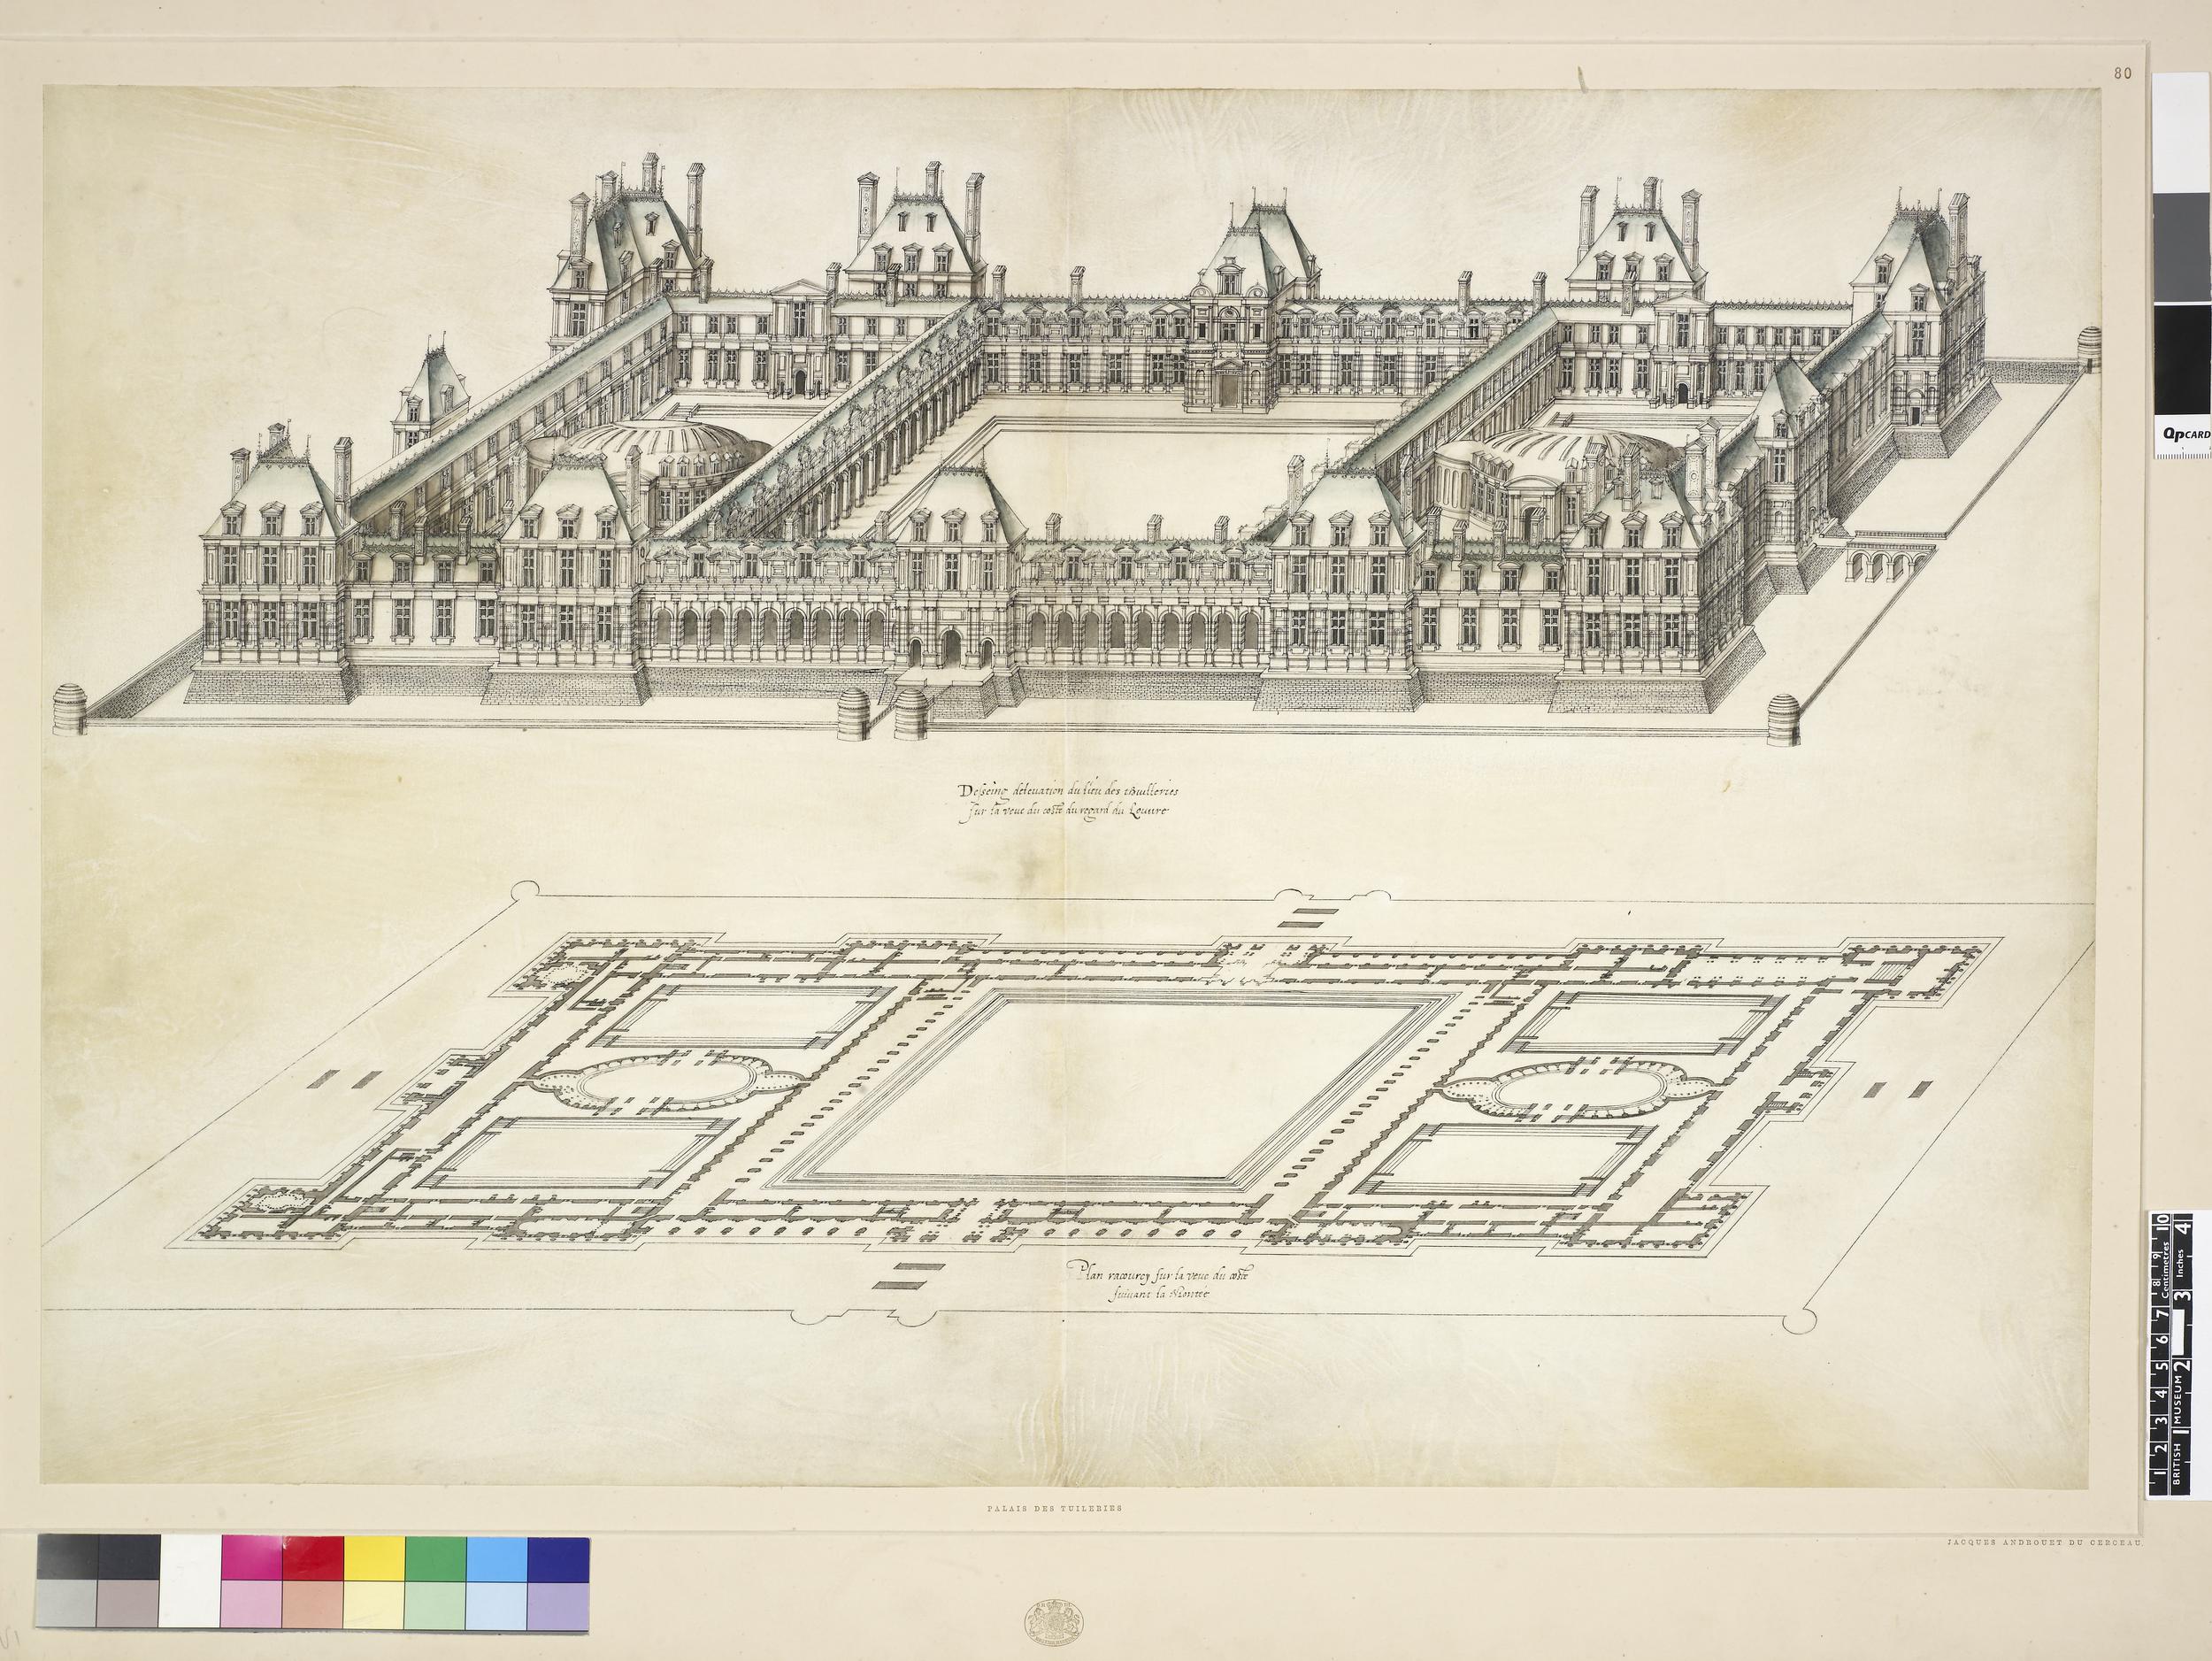 80
Desseing delevation du lieu des thuilleries
sur la veue du costé du regard du Louvre
Plan racourcy sur la veue du costé
suivant la Montée
PALAIS DES TUILERIES
JACQUES ANDROUET DU CERCEAU
QPCARD
1 2 3 4 5 6 7 8 9 10 Centimetres
BRITISH MUSEUM 1 2 3 4 Inches